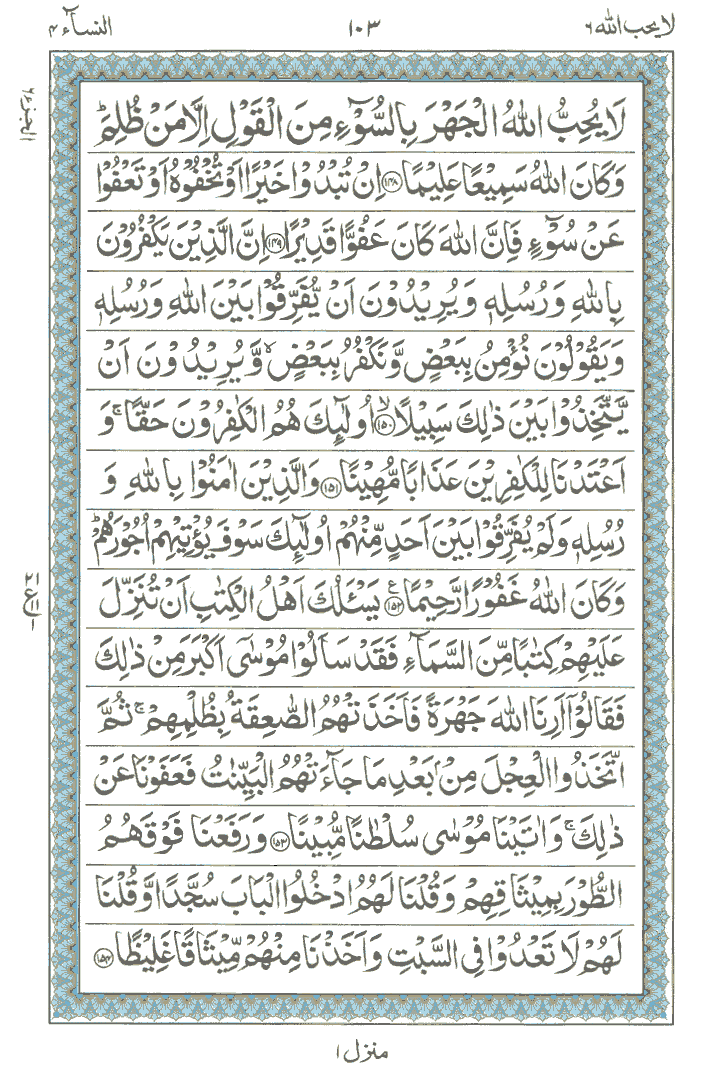 لا یحب الله ۶
۱۰۳
النسآء ۴
الجزء ۶
لَا يُحِبُّ اللّٰهُ الْجَهْرَ بِالسُّوْٓءِ مِنَ الْقَوْلِ اِلَّا مَنْ ظُلِمَ ؕ
وَكَانَ اللّٰهُ سَمِيْعًا عَلِيْمًا ﴿۱۴۸﴾ اِنْ تُبْدُوْا خَيْرًا اَوْ تُخْفُوْهُ اَوْ تَعْفُوْا
عَنْ سُوْٓءٍ فَاِنَّ اللّٰهَ كَانَ عَفُوًّا قَدِيْرًا ﴿۱۴۹﴾ اِنَّ الَّذِيْنَ يَكْفُرُوْنَ
بِاللّٰهِ وَرُسُلِهٖ وَيُرِيْدُوْنَ اَنْ يُّفَرِّقُوْا بَيْنَ اللّٰهِ وَرُسُلِهٖ
وَيَقُوْلُوْنَ نُؤْمِنُ بِبَعْضٍ وَّنَكْفُرُ بِبَعْضٍ ۙ وَّيُرِيْدُوْنَ اَنْ
يَّتَّخِذُوْا بَيْنَ ذٰلِكَ سَبِيْلًا ۙ﴿۱۵۰﴾ اُولٰٓئِكَ هُمُ الْكٰفِرُوْنَ حَقًّا ۚ وَ
اَعْتَدْنَا لِلْكٰفِرِيْنَ عَذَابًا مُّهِيْنًا ﴿۱۵۱﴾ وَالَّذِيْنَ اٰمَنُوْا بِاللّٰهِ وَ
رُسُلِهٖ وَلَمْ يُفَرِّقُوْا بَيْنَ اَحَدٍ مِّنْهُمْ اُولٰٓئِكَ سَوْفَ يُؤْتِيْهِمْ اُجُوْرَهُمْ ؕ
وَكَانَ اللّٰهُ غَفُوْرًا رَّحِيْمًا ﴿۱۵۲﴾ ع يَسْـَٔلُكَ اَهْلُ الْكِتٰبِ اَنْ تُنَزِّلَ
عَلَيْهِمْ كِتٰبًا مِّنَ السَّمَآءِ فَقَدْ سَاَلُوْا مُوْسٰٓى اَكْبَرَ مِنْ ذٰلِكَ
فَقَالُوْٓا اَرِنَا اللّٰهَ جَهْرَةً فَاَخَذَتْهُمُ الصّٰعِقَةُ بِظُلْمِهِمْ ۚ ثُمَّ
اتَّخَذُوا الْعِجْلَ مِنْۢ بَعْدِ مَا جَآءَتْهُمُ الْبَيِّنٰتُ فَعَفَوْنَا عَنْ
ذٰلِكَ ۚ وَاٰتَيْنَا مُوْسٰى سُلْطٰنًا مُّبِيْنًا ﴿۱۵۳﴾ وَرَفَعْنَا فَوْقَهُمُ
الطُّوْرَ بِمِيْثَاقِهِمْ وَقُلْنَا لَهُمُ ادْخُلُوا الْبَابَ سُجَّدًا وَّقُلْنَا
لَهُمْ لَا تَعْدُوْا فِى السَّبْتِ وَاَخَذْنَا مِنْهُمْ مِّيْثَاقًا غَلِيْظًا ﴿۱۵۴﴾
منزل ۱